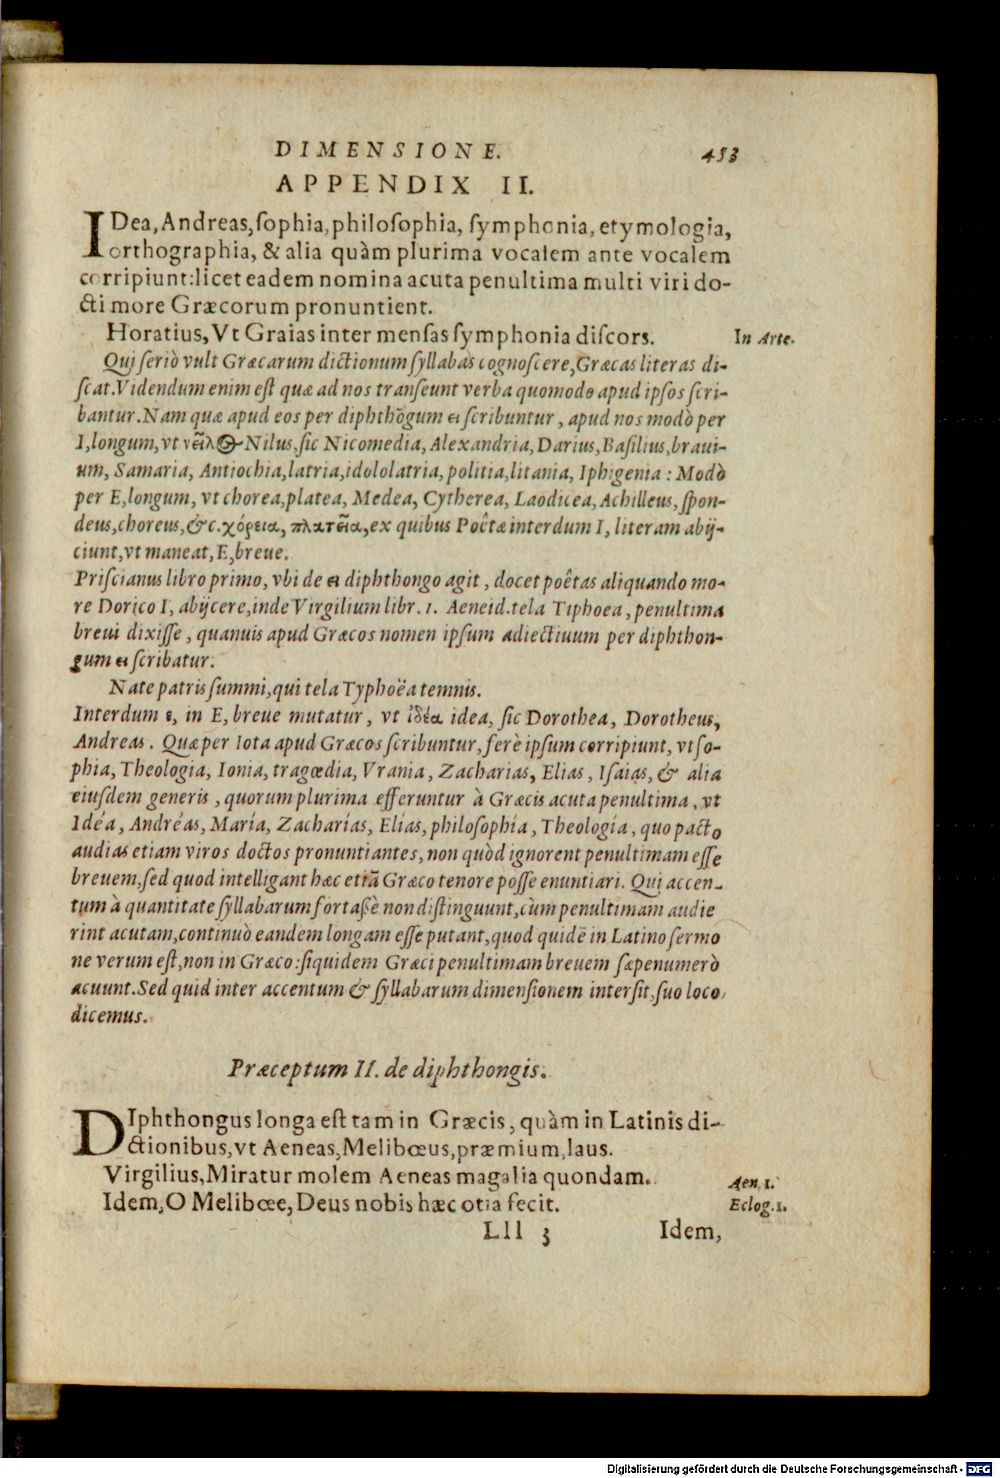 DIMENSIONE. 453
APPENDIX II.
IDea, Andreas, ſophia, philoſophia, ſymphonia, etymologia,
orthographia, & alia quàm plurima vocalem ante vocalem
corripiunt: licet eadem nomina acuta penultima multi viri do-
cti more Græcorum pronuntient.
Horatius, Vt Graias inter menſas ſymphonia diſcors. In Arte.
Qui ſeriò vult Græcarum dictionum ſyllabas cognoſcere, Græcas literas di-
ſcat. Videndum enim eſt quæ ad nos tranſeunt verba quomodo apud ipſos ſcri-
bantur. Nam quæ apud eos per diphthõgum ει ſcribuntur, apud nos modò per
I, longum, vt νεῖλος Nilus, ſic Nicomedia, Alexandria, Darius, Baſilius, braui-
um, Samaria, Antiochia, latria, idololatria, politia, litania, Iphigenia: Modò
per E, longum, vt chorea, platea, Medea, Cytherea, Laodicea, Achilleus, ſpon-
deus, choreus, &c. χόρεια, πλατεῖα, ex quibus Poëtæ interdum I, literam abij-
ciunt, vt maneat, E, breue.
Priſcianus libro primo, vbi de ει diphthongo agit, docet poëtas aliquando mo-
re Dorico I, abijcere, inde Virgilium libr. 1. Aeneid. tela Tiphoea, penultima
breui dixiſſe, quanuis apud Græcos nomen ipſum adiectiuum per diphthon-
gum ει ſcribatur.
Nate patris ſummi, qui tela Typhoëa temnis.
Interdum ε, in E, breue mutatur, vt ἰδέα idea, ſic Dorothea, Dorotheus,
Andreas. Quæ per Iota apud Græcos ſcribuntur, ferè ipſum corripiunt, vt ſo-
phia, Theologia, Ionia, tragœdia, Vrania, Zacharias, Elias, Iſaias, & alia
eiuſdem generis, quorum plurima efferuntur à Græcis acuta penultima, vt
Idéa, Andréas, María, Zacharías, Elías, philoſophía, Theología, quo pacto
audias etiam viros doctos pronuntiantes, non quòd ignorent penultimam eſſe
breuem, ſed quod intelligant hæc etiã Græco tenore poſſe enuntiari. Qui accen-
tum à quantitate ſyllabarum fortaßè non diſtinguunt, cùm penultimam audie
rint acutam, continuò eandem longam eſſe putant, quod quidẽ in Latino ſermo
ne verum eſt, non in Græco: ſiquidem Græci penultimam breuem ſæpenumerò
acuunt. Sed quid inter accentum & ſyllabarum dimenſionem interſit, ſuo loco
dicemus.
Præceptum II. de diphthongis.
DIphthongus longa eſt tam in Græcis, quàm in Latinis di-
ctionibus, vt Aeneas, Melibœus, præmium, laus.
Virgilius, Miratur molem Aeneas magalia quondam. Aen. 1.
Idem, O Melibœe, Deus nobis hæc otia fecit. Eclog. 1.
Lll 3 Idem,
Digitalisierung gefördert durch die Deutsche Forschungsgemeinschaft - DFG